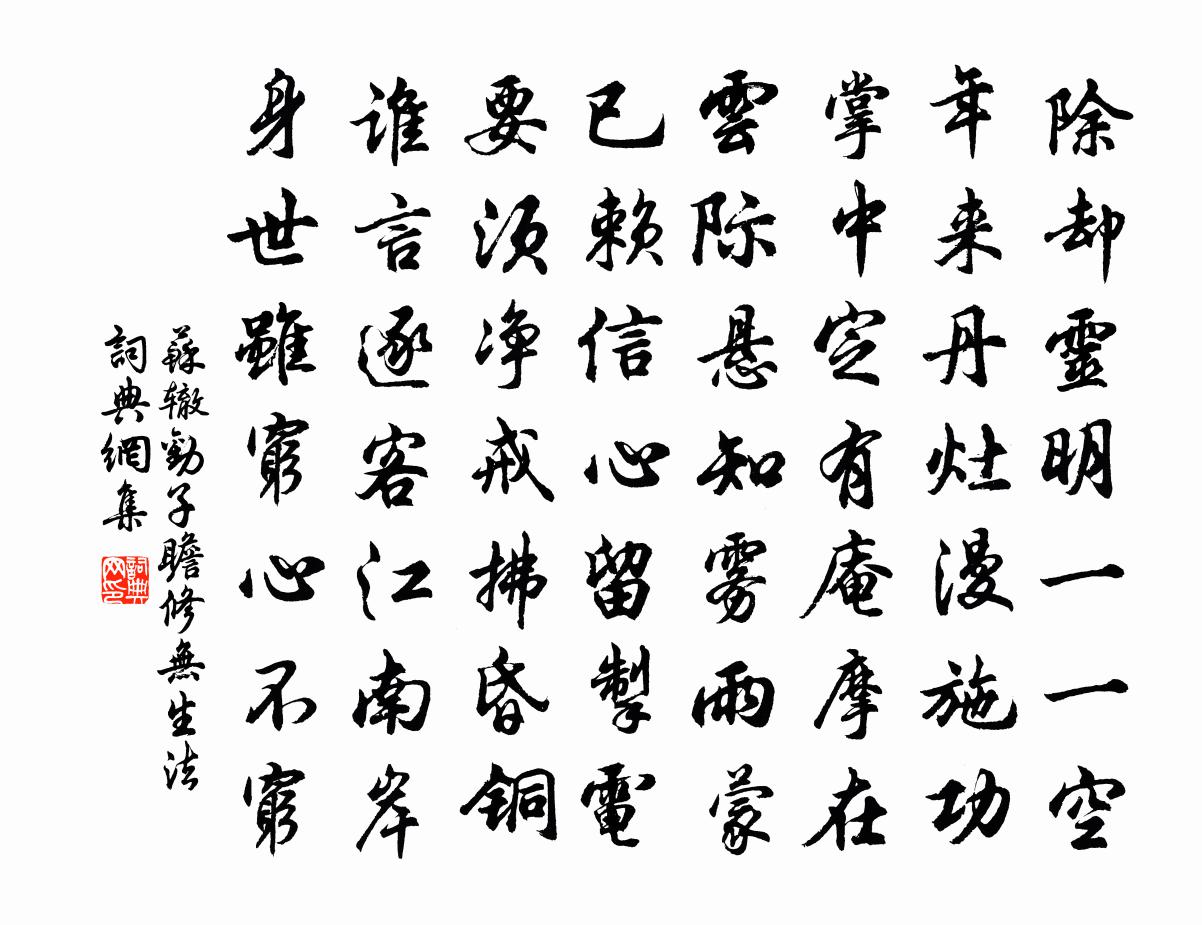 除却靈明一一空
年来丹灶漫施功
掌中定有庵摩在
雲际悬知雾雨蒙
已赖信心留掣電
要须净戒拂昏铜
谁言逐客江南岸
身世雖窮心不窮
蘇辙勸子瞻修無生法
詞典網集
詞典网印